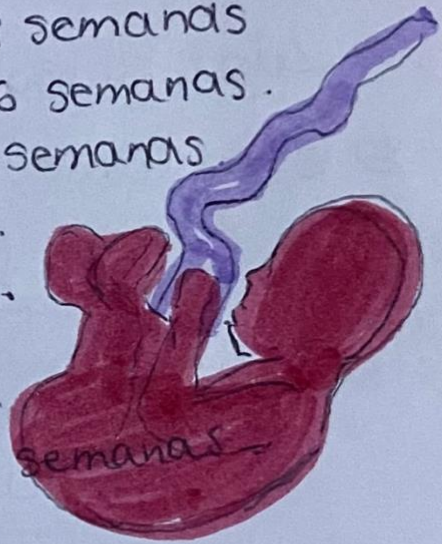 semanas
semanas.
semanas
semanas